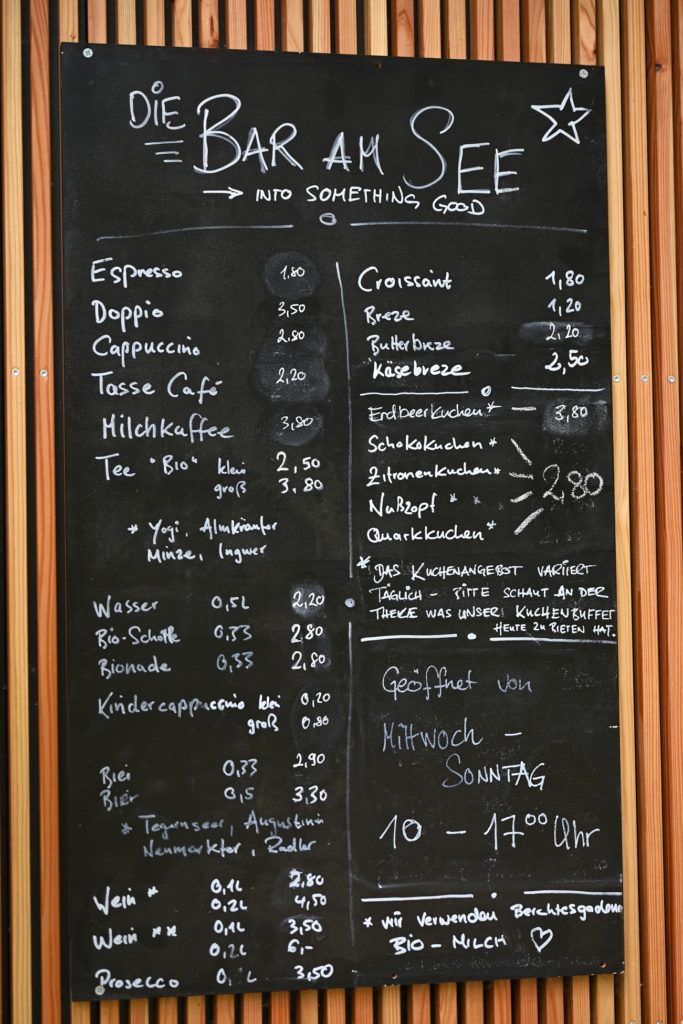 DIE BAR AM SEE
→ INTO SOMETHING GOOD
Espresso 1.80
Doppio 3,50
Cappuccino 2.80
Tasse Café 2,20
Milchkaffee 3,80
Tee "Bio" klein 2,50
groß 3.80
* Yogi, Almkräuter
Minze, Ingwer
Wasser 0,5L 2,20
Bio-Schorle 0,33 2,80
Bionade 0,33 2,80
Kindercappuccino klei 0,20
groß 0,80
Bier 0,33 2,90
Bier 0,5 3,30
* Tegernseer, Augustiner
Neumarkter, Radler
Wein * 0,1L 2,80
0,2L 4,50
Wein ** 0,1L 3,50
0,2L 6,-
Prosecco 0,1L 3,50
Croissant 1,80
Breze 1,20
Butterbreze 2,20
Käsebreze 2,50
Erdbeerkuchen* — 3,80
Schokokuchen *
Zitronenkuchen* 2,80
Nußzopf * *
Quarkkuchen *
* DAS KUCHENANGEBOT VARIIERT
TÄGLICH - BITTE SCHAUT AN DER
THEKE WAS UNSER KUCHENBUFFET
HEUTE ZU BIETEN HAT.
Geöffnet von
Mittwoch –
SONNTAG
10 – 17⁰⁰ Uhr
* wir verwenden Berchtesgadener
BIO - MILCH ♡